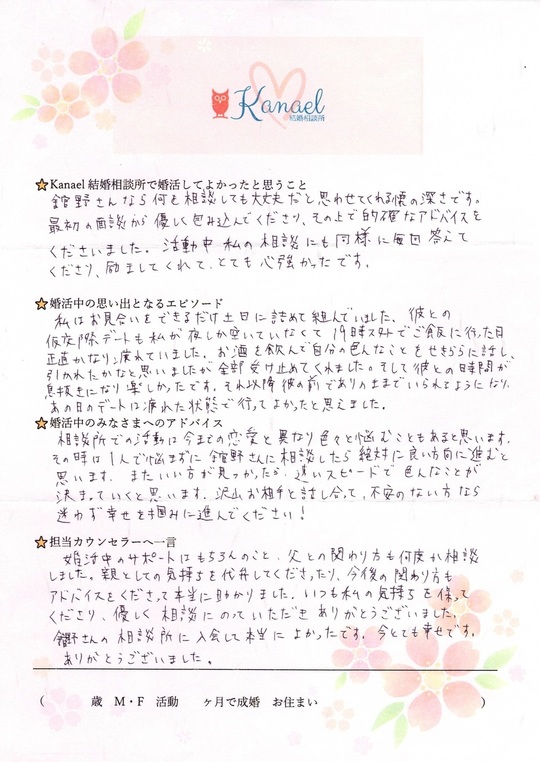 Kanael
結婚相談所
Kanael 結婚相談所で婚活してよかったと思うこと
舘野さんなら何を相談しても大丈夫だと思わせてくれる懐の深さです。
最初の面談から優しく包み込んでくださり、その上で的確なアドバイスを
くださいました。活動中私の相談にも同様に毎回答えて
くださり、励ましてくれて、とても心強かったです。
婚活中の思い出となるエピソード
私はお見合いをできるだけ土日に詰めて組んでいました。彼との
仮交際デートも私が夜しか空いていなくて19時スタートでご飯に行った日
正直かなり疲れていました。お酒を飲んで自分の色んなことをせきららに話し、
引かれたかなと思いましたが全部受け止めてくれました。そして彼との時間が
息抜きになり楽しかったです。それ以降彼の前でありのままでいられるようになり、
あの日のデートは疲れた状態で行ってよかったと思えました。
婚活中のみなさまへのアドバイス
相談所での活動は今までの恋愛と異なり色々と悩むこともあると思います。
その時は1人で悩まずに舘野さんに相談したら絶対に良い方向に進むと
思います。またいい方が見つかったら、速いスピードで色んなことが
決まっていくと思います。沢山お相手と話し合って、不安のない方なら
迷わず幸せを掴みに進んでください!
担当カウンセラーへ一言
婚活中のサポートはもちろんのこと、父との関わり方も何度か相談
しました。親としての気持ちを代弁してくださったり、今後の関わり方も
アドバイスをくださって本当に助かりました。いつも私の気持ちを保って
くださり、優しく相談にのっていただきありがとうございました。
舘野さんの相談所に入会して本当によかったです。今とても幸せです。
ありがとうございました。
( 歳 M・F 活動 ヶ月で成婚 お住まい )